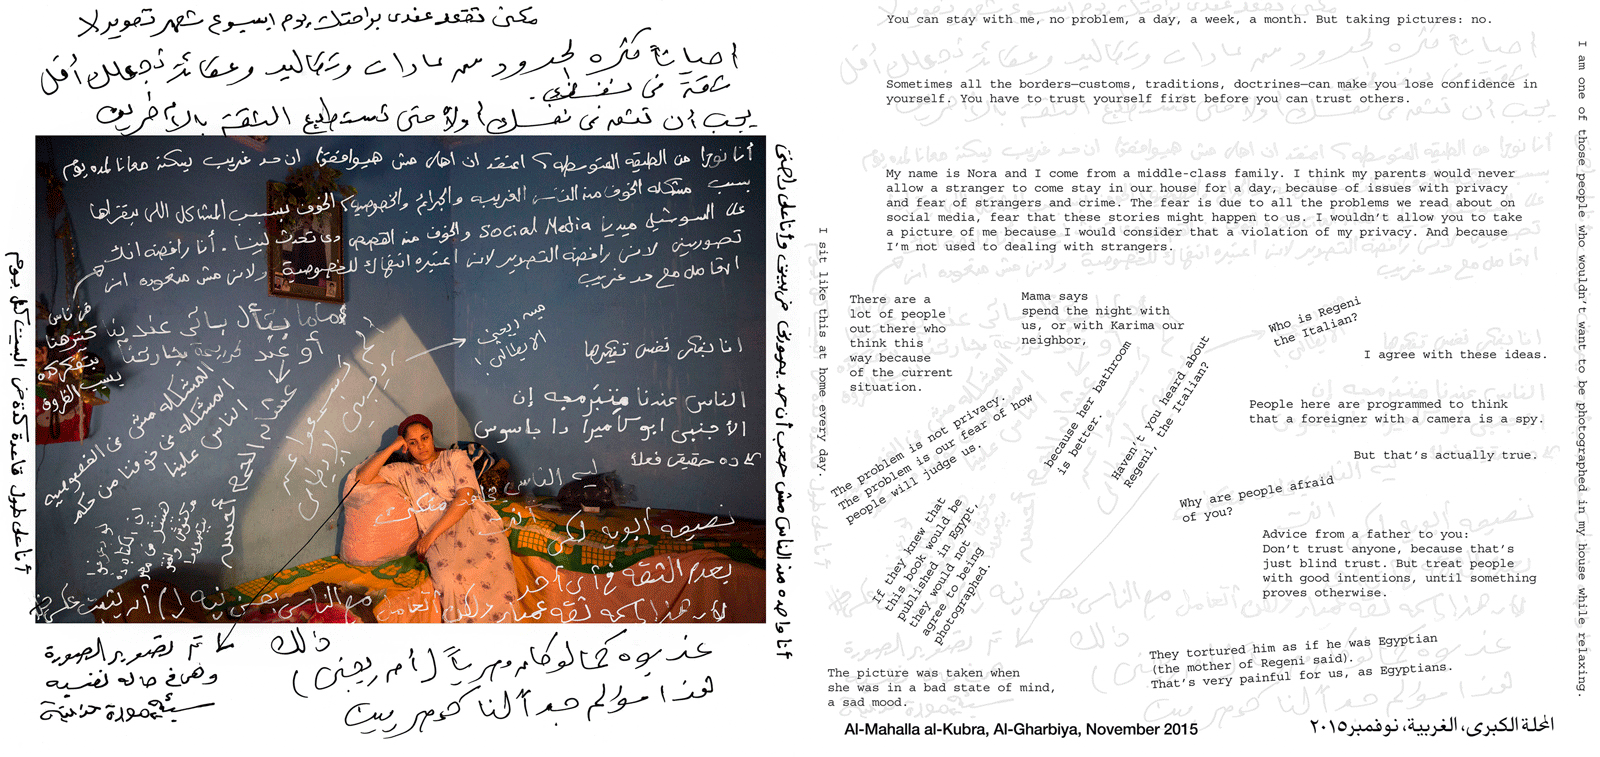 ممكن تقعد عندى براحتك يوم اسبوع شهر تصوير لا
أحياناً كثره الحدود من عادات وتقاليد وعقائد تجعلك أقل
ثقة فى نفسك.
يجب أن تثق فى نفسك أولاً حتى تستطيع الثقة بالآخرين
أنا نورا من الطبقه المتوسطه، اعتقد ان اهلى مش هيوافقوا ان حد غريب يسكن معانا لمده يوم
بسبب مشكله الخوف من الناس الغريبه والجرائم والخصوصيه، الخوف بسبب المشاكل اللى بنقراها
على السوشيل ميديا Social Media والخوف من القصص دى تحدث لينا. أنا رافضه انك
تصورينى لانى رافضة التصوير لانى اعتبره انتهاك للخصوصية ولانى مش متعوده انى
اتعامل مع حد غريب
ماما بتقول باتى عندينا
أو عند كريمة جارتنا
عشان الحمام أحسن
المشكله مش فى الخصوصيه
المشكله فى خوفنا من حكم
الناس علينا
انا بفكر نفس تفكيرها
الناس عندنا متبرمجه إن
الأجنبى ابو كاميرا دا جاسوس
ده حقيقى فعلاً
ليه الناس
نصيحه أبويه لكى
بعدم الثقه فى أى أحد
أنا على طول قاعدة كدة فى البيت كل يوم
تم تصوير الصورة
وهى فى حاله نفسيه
سيئة
عذبوه كما لو كان مصرياً (أم ريجينى)
هذا مؤلم جداً لنا كمصريين
You can stay with me, no problem, a day, a week, a month. But taking pictures: no.
Sometimes all the borders—customs, traditions, doctrines—can make you lose confidence in
yourself. You have to trust yourself first before you can trust others.
My name is Nora and I come from a middle-class family. I think my parents would never
allow a stranger to come stay in our house for a day, because of issues with privacy
and fear of strangers and crime. The fear is due to all the problems we read about on
social media, fear that these stories might happen to us. I wouldn't allow you to take
a picture of me because I would consider that a violation of my privacy. And because
I'm not used to dealing with strangers.
I sit like this at home every day.
There are a
lot of people
out there who
think this
way because
of the current
situation.
Mama says
spend the night with
us, or with Karima our
neighbor,
because her bathroom
is better.
Haven't you heard about
Regeni, the Italian?
Who is Regeni
the Italian?
I agree with these ideas.
The problem is not privacy.
The problem is our fear of how
people will judge us.
People here are programmed to think
that a foreigner with a camera is a spy.
But that's actually true.
Why are people afraid
of you?
If they knew that
this book would be
published in Egypt,
they would not
agree to being
photographed.
Advice from a father to you:
Don't trust anyone, because that's
just blind trust. But treat people
with good intentions, until something
proves otherwise.
They tortured him as if he was Egyptian
(the mother of Regeni said).
That's very painful for us, as Egyptians.
The picture was taken when
she was in a bad state of mind,
a sad mood.
I am one of those people who wouldn't want to be photographed in my house while relaxing.
Al-Mahalla al-Kubra, Al-Gharbiya, November 2015
المحلة الكبرى، الغربية، نوفمبر ٢٠١٥